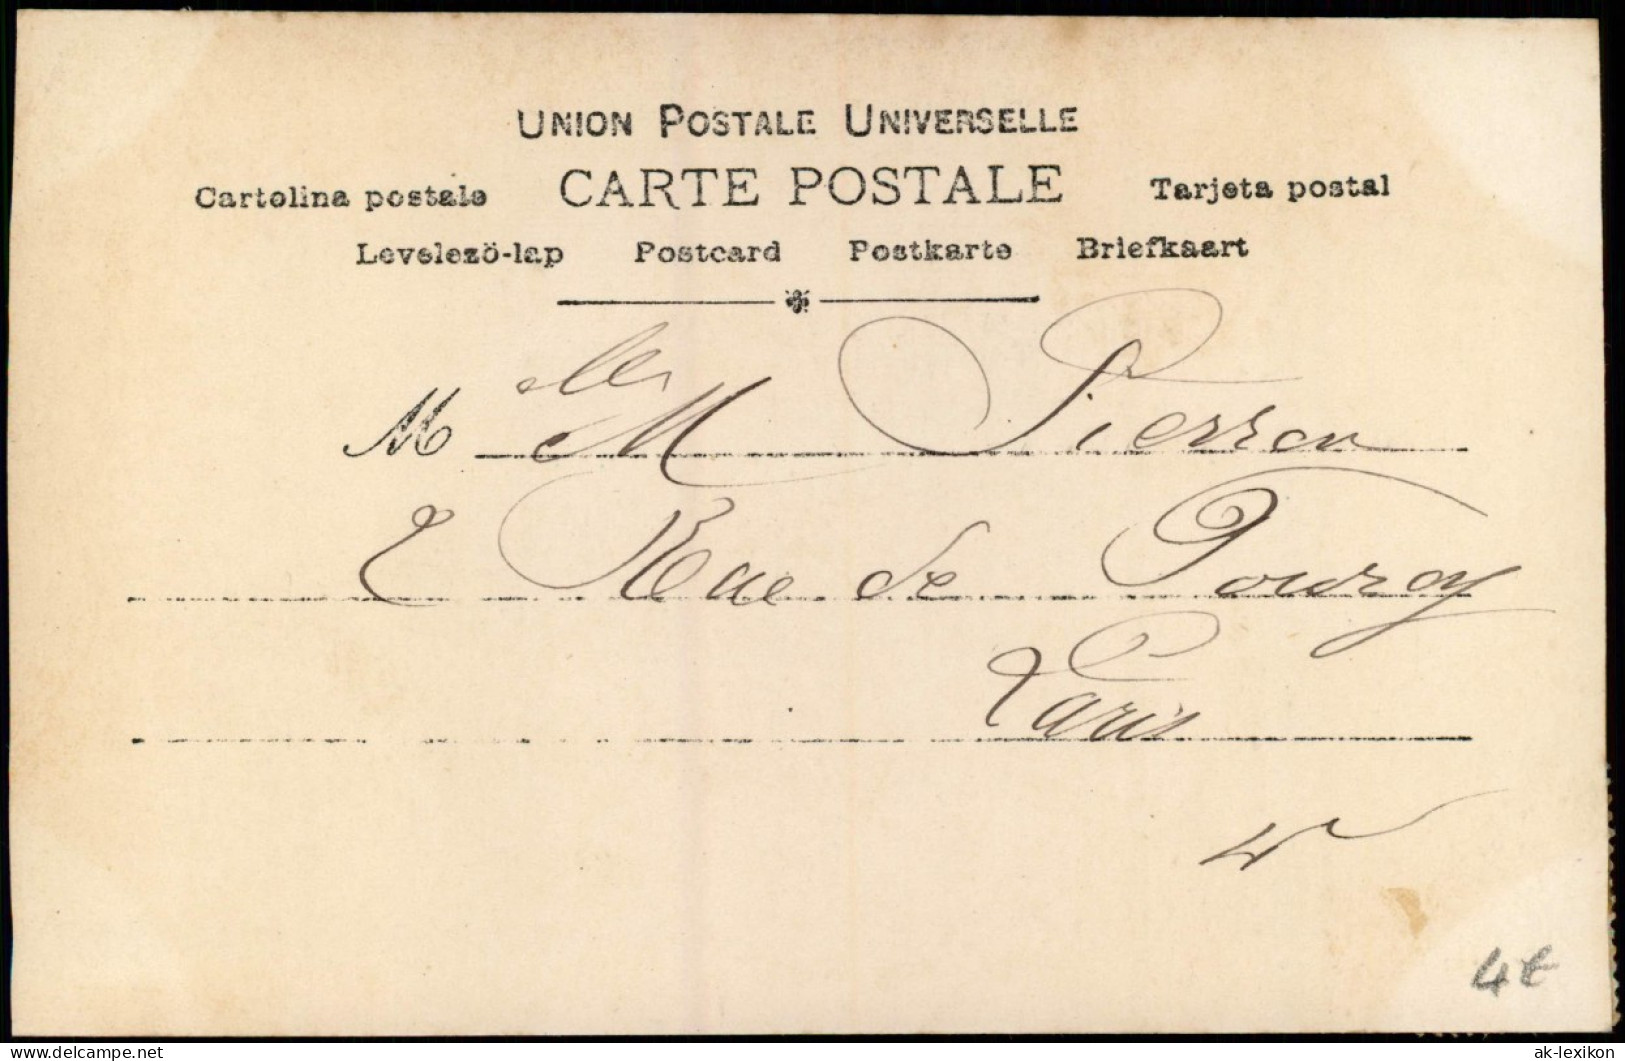 UNION POSTALE UNIVERSELLE
Cartolina postale CARTE POSTALE Tarjeta postal
Levelezö-lap Postcard Postkarte Briefkaart
M lle M Pierron
2 Rue de Tourcy
Paris
4€
delcampe.net
ak-lexikon